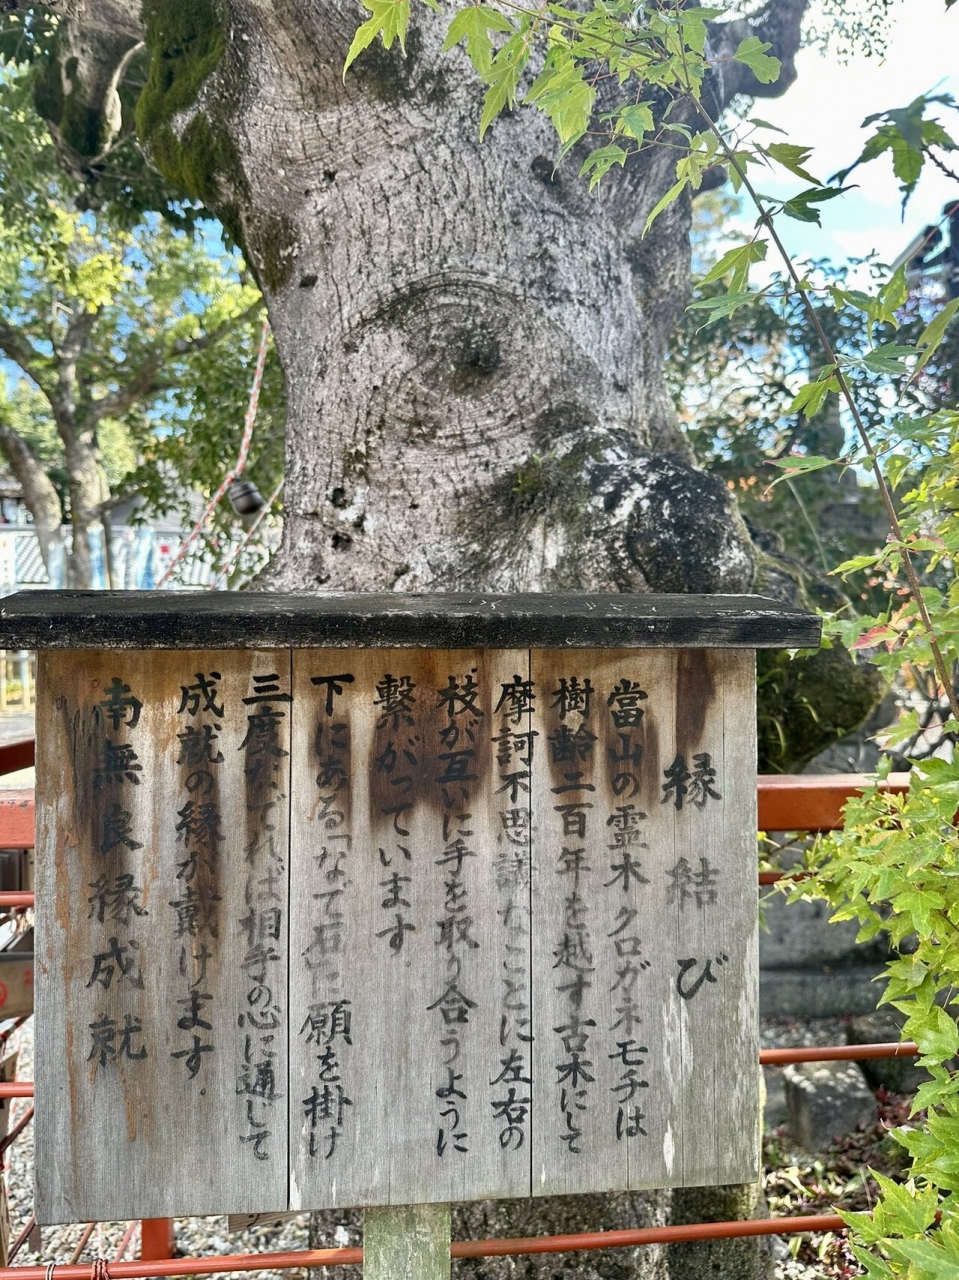 縁結び
當山の霊木クロガネモチは
樹齢二百年を越す古木にして
摩訶不思議なことに左右の
枝が互いに手を取り合うように
繋がっています。
下にある「なで石」に願を掛け
三度なでれば相手の心に通じて
成就の縁が戴けます。
南無良縁成就